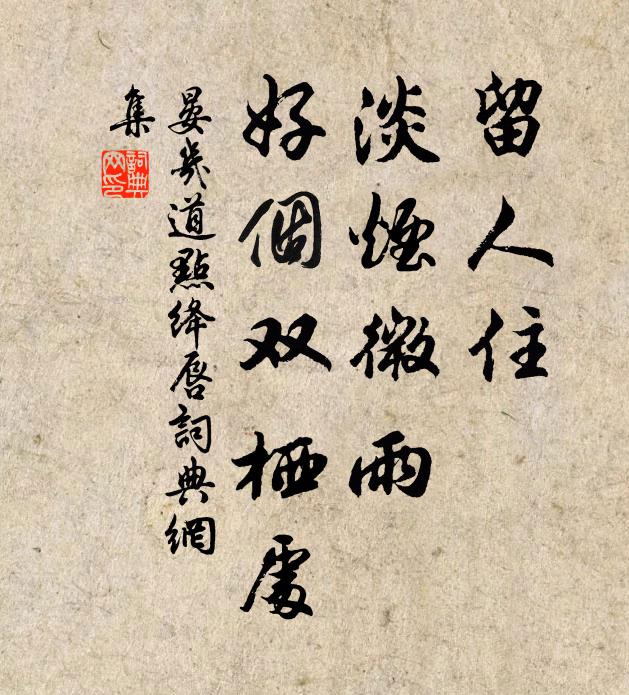 留人住
淡煙微雨
好個双栖處
晏幾道點絳唇詞典網
集
詞典
网印